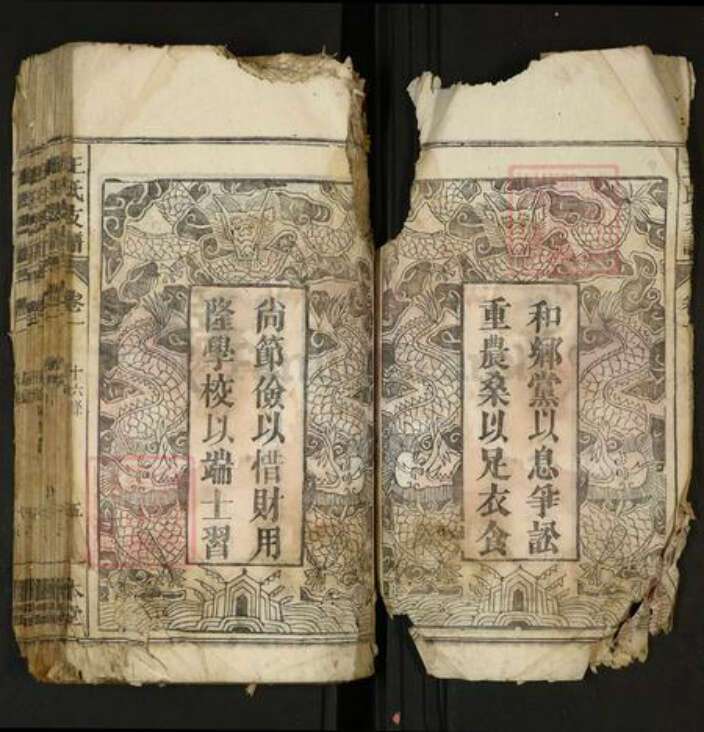 和鄉黨以息爭訟
重農桑以足衣食
尚節儉以惜財用
隆學校以端士習
汪氏支譜
卷一
十六條
五